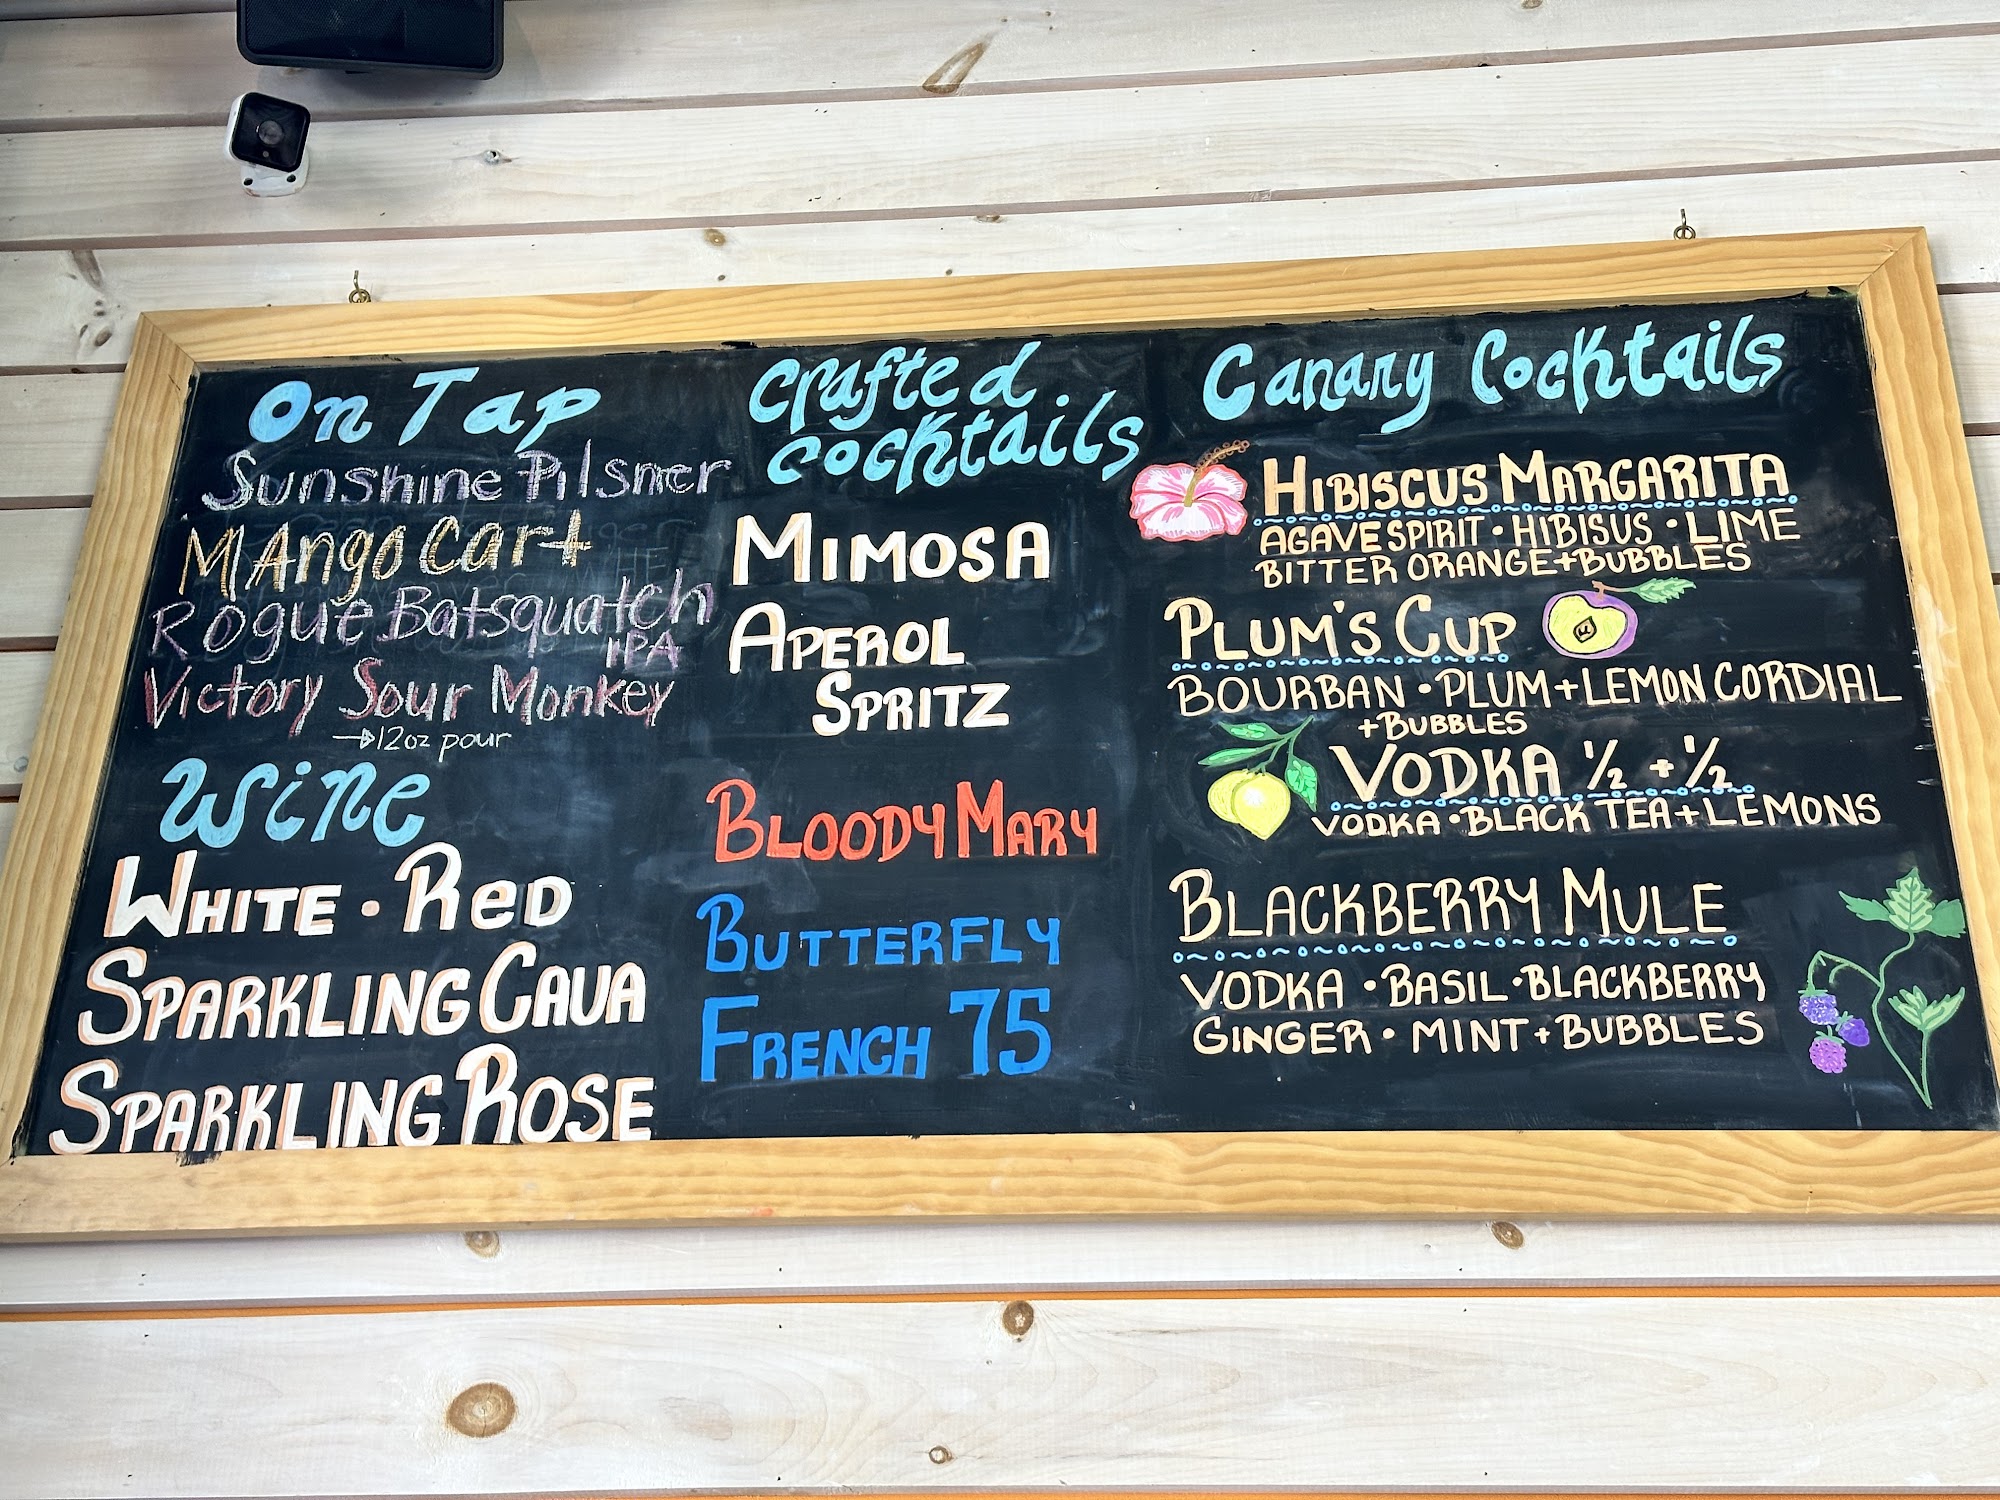 On Tap
Sunshine Pilsner
MAngo Cart
Rogue Batsquatch
IPA
Victory Sour Monkey
→12oz pour
Wine
WHITE · ReD
SPARKLING CAVA
SPARKLING ROSE
Crafted
cocktails
MIMOSA
APEROL
SPRITZ
BLOODY MARY
BUTTERFLY
FRENCH 75
Canary Cocktails
HIBISCUS MARGARITA
AGAVE SPIRIT · HIBISUS · LIME
BITTER ORANGE + BUBBLES
PLUM'S CUP
BOURBAN · PLUM + LEMON CORDIAL
+ BUBBLES
VODKA ½ + ½
VODKA · BLACK TEA + LEMONS
BLACKBERRY MULE
VODKA · BASIL · BLACKBERRY
GINGER · MINT + BUBBLES